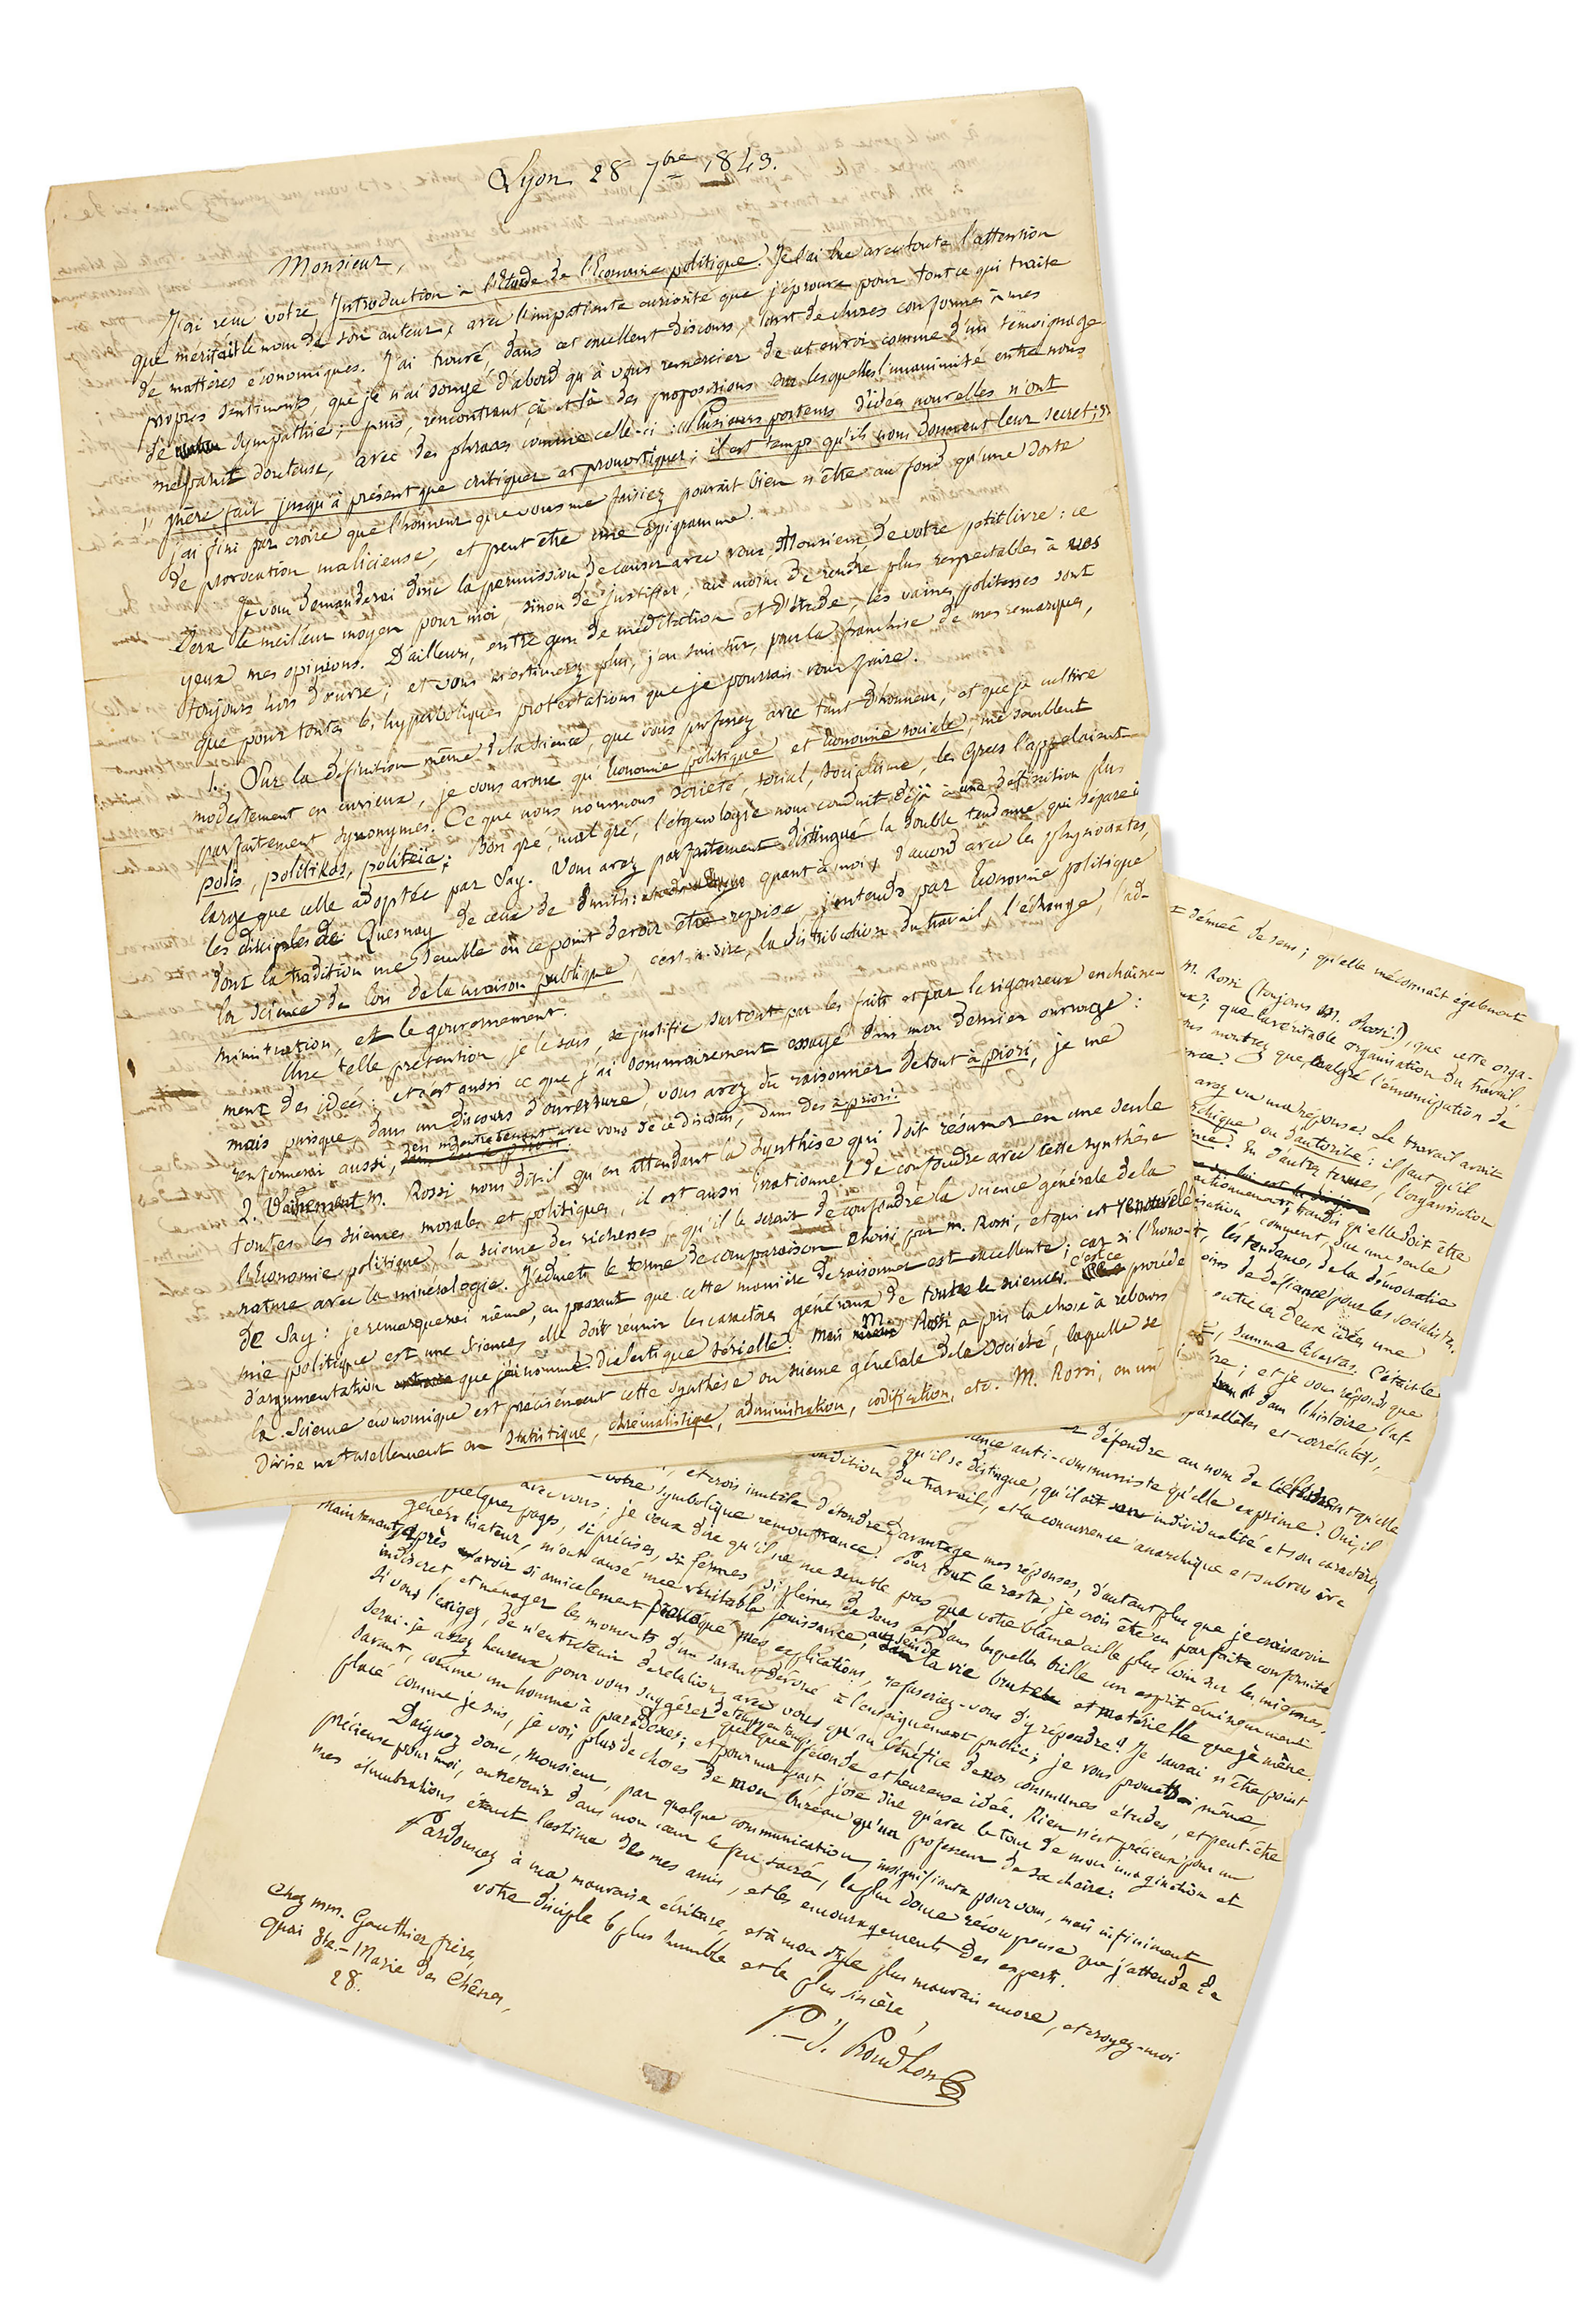 Lyon 28 7bre 1843.
Monsieur,
J'ai reçu votre Introduction à l'étude de l'Economie politique. Je l'ai lue avec toute l'attention
que méritait le nom de son auteur, avec l'impatiente curiosité que j'éprouve pour tout ce qui traite
de matières économiques. J'ai trouvé, dans cet excellent discours, tant de choses conformes à mes
propres sentiments, que je n'ai songé d'abord qu'à vous remercier de cet envoi comme d'un témoignage
de sympathie; puis, rencontrant çà et là des propositions sur lesquelles l'unanimité entre nous
me parait douteuse, avec des phrases comme celle-ci : « Plusieurs porteurs d'idées nouvelles n'ont
" guère fait jusqu'à présent que critiquer et pronostiquer; il est temps qu'ils nous donnent leur secret; »
j'ai fini par croire que l'honneur que vous me faisiez pourait bien n'être au fond qu'une sorte
de provocation malicieuse, et peut être une épigramme.
Je vous demanderai donc la permission de causer avec vous, Monsieur, de votre petit livre : ce
sera le meilleur moyen pour moi, sinon de justifier, au moins de rendre plus respectables à vos
yeux mes opinions. D'ailleurs, entre gens de méditation et d'étude, les vaines politesses sont
toujours hors d'œuvre; et vous m'estimerez plus, j'en suis sûr, pour la franchise de mes remarques,
que pour toutes les hyperboliques protestations que je pourrais vous faire.
1. Sur la définition même de la science, que vous professez avec tant d'honneur, et que je cultive
modestement en curieux, je vous avoue qu'Economie politique et Economie sociale, me semblent
parfaitement synonymes. Ce que nous nommons société, social, socialisme, les Grecs l'appelaient
polis, politikos, politeïa; bon gré, mal gré, l'étymologie nous conduit déjà à une définition plus
large que celle adoptée par Say. Vous avez parfaitement distingué la double tendance qui sépare
les disciples de Quesnay de ceux de Smith : quant à moi, d'accord avec les physiocrates,
dont la tradition me semble en ce point devoir être reprise, j'entends par Economie politique
la science des lois de la raison publique, c'est-à-dire, la distribution du travail, l'échange, l'ad-
ministration, et le gouvernement.
Une telle prétention, je le sais, se justifie surtout par les faits et par le rigoureux enchaîne-
ment des idées : et c'est aussi ce que j'ai sommairement essayé dans mon dernier ouvrage :
mais puisque, dans un discours d'ouverture, vous avez dû raisonner de tout à priori, je me
renfermerai aussi, en m'entretenant avec vous de ce discours, dans des à priori.
2. Vainement M. Rossi nous dit-il qu'en attendant la synthèse qui doit résumer en une seule
toutes les sciences morales et politiques, il est aussi irrationnel de confondre avec cette synthèse
l'Economie politique, la science des richesses, qu'il le serait de confondre la science générale de la
nature avec la minéralogie. J'admets le terme de comparaison choisi par M. Rossi, et qui est renouvelé
de Say : je remarquerai même, en passant que cette manière de raisonner est excellente; car si l'Econo-
mie politique est une science, elle doit réunir les caractères généraux de toutes les sciences. C'est ce procédé
d'argumentation que j'ai nommé Dialectique sérielle. Mais M. Rossi a pris la chose à rebours
la Science économique est précisément cette synthèse ou science générale de la société, laquelle se
divise naturellement en statistique, chrématistique, administration, codification, etc. M. Rossi, en un
dénuée de sens; qu'elle méconnaît également
M. Rossi (toujours M. Rossi!), que cette orga-
que la véritable organisation du travail,
montrez que, malgré l'émancipation de
avez vu ma réponse. Le travail avait
ou d'autorité : il faut qu'il
En d'autres termes, l'organisation
tandis qu'elle doit être
comment, sur une seule
les tendances de la démocratie
de défiance pour les socialistes.
entre ces deux idées une
summa libertas. C'était le
; et je vous réponds que
dans l'histoire, l'af-
parallèles et corrélatifs,
défendre au nom de
anti-communiste qu'elle exprime. Oui, il
qu'il se distingue, qu'il ait son individualité et son caractère,
condition du travail, et la concurrence anarchique et subversive
et crois inutile d'étendre davantage mes réponses, d'autant plus que je crois avoir
votre symbolique remontrance. Pour tout le reste, je crois être en parfaite conformité
avec vous; je veux dire qu'il ne me semble pas que votre blâme aille plus loin sur les miennes.
quelques pages, si précises, si fermes, si pleines de sens, et dans lesquelles brille un esprit éminemment
généralisateur, m'ont causé une véritable jouissance, au sein de la vie brute et matérielle que je mène.
Maintenant, après avoir si amicalement provoqué mes explications, refuseriez-vous d'y répondre? Je saurai n'être point
indiscret, et ménager les moments d'un savant dévoué à l'enseignement public; je vous promets même
si vous l'exigez, de n'entretenir de relations avec vous qu'au bénéfice de nos communes études, et peut-être
serai-je assez heureux pour vous suggérer de temps en temps quelque féconde et heureuse idée. Rien n'est précieux pour un
savant, comme un homme à paradoxes; et pour ma part, j'ose dire qu'avec le tour de mon imagination et
placé comme je suis, je vois plus de choses de mon bureau qu'un professeur de sa chaire.
Daignez donc, monsieur, par quelque communication, insignifiante pour vous, mais infiniment
précieuse pour moi, entretenir dans mon cœur le feu sacré, la plus douce récompense que j'attende de
mes élucubrations étant l'estime de mes amis, et les encouragements des experts.
Pardonnez à ma mauvaise écriture, et à mon style plus mauvais encore, et croyez-moi
votre disciple le plus humble et le plus sincère,
P.-J. Proudhon
Chez MM. Gauthier frères,
quai Ste.-Marie des Chênes,
28.